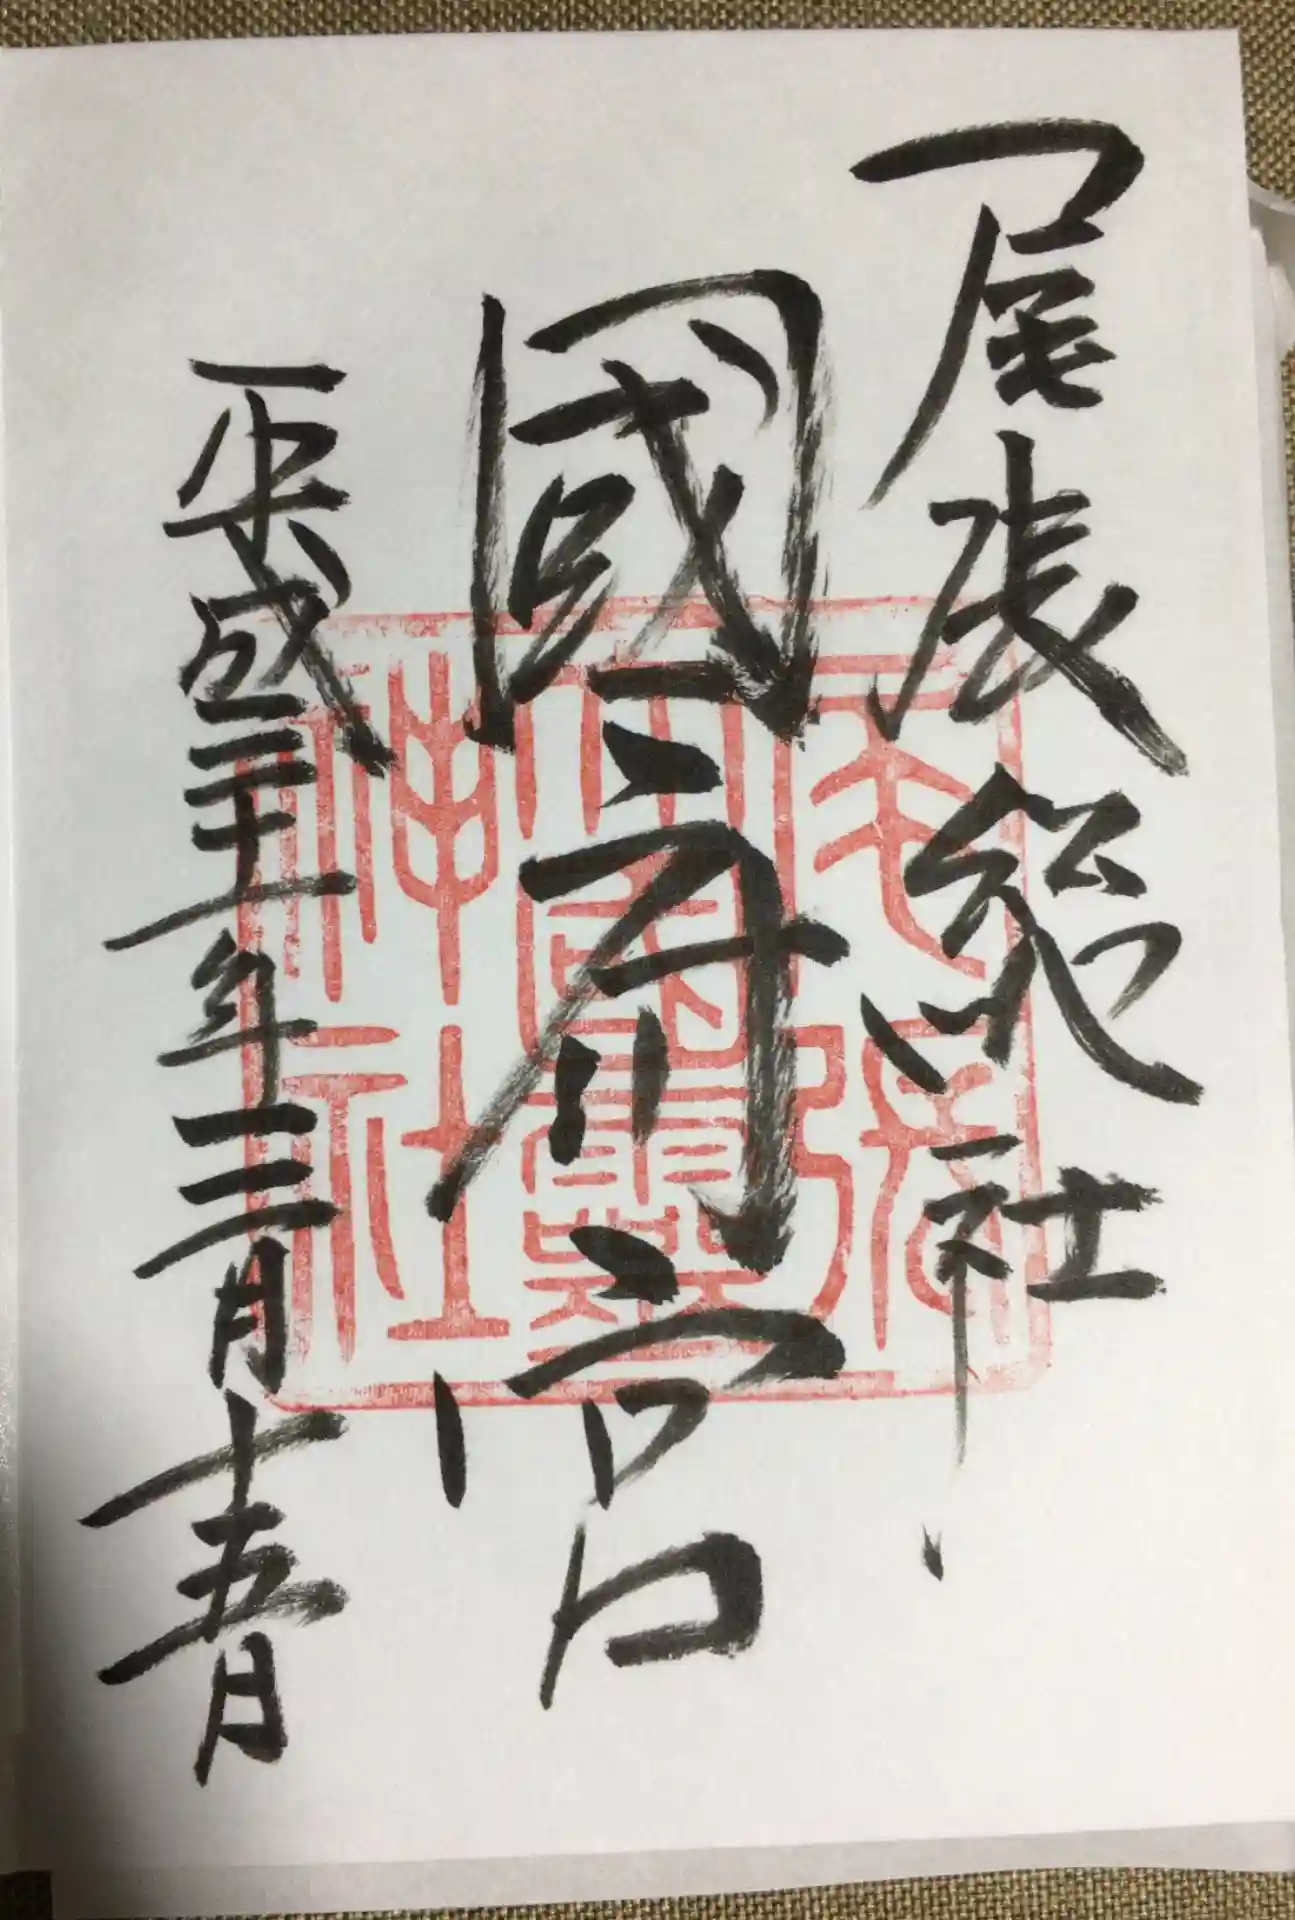 尾張総社
國府宮
平成三十一年三月十五日
尾張
大國霊
神社